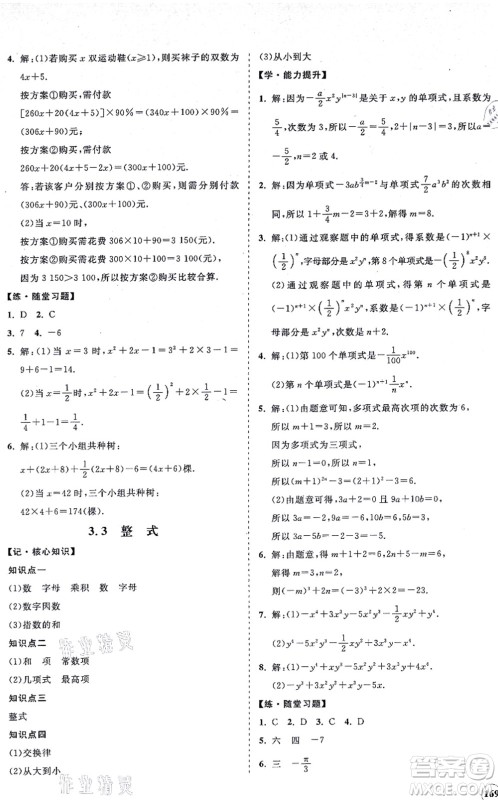 4. 解:(1)若购买 x 双运动鞋(x≥1),买袜子的双数为
4x+5.
按方案①购买,需付款
[260x+20(4x+5)]×90%=(340x+100)×90%=
(306x+90)元.
按方案②购买,需付款
260x+20(4x+5-2x)=(300x+100)元.
答:若该客户分别按方案①、②购买,各需付款
(306x+90)元、(300x+100)元.
(2)当 x=10 时,
按方案①购买需花费 306×10+90=3 150(元).
按方案②购买需花费 300×10+100=3 100(元).
因为 3 150>3 100,所以按方案②购买比较合算.
【练·随堂习题】
1. D 2. C
3. 7 4. -6
5. 解:(1)当 x=3 时,x²+2x-1=3²+2×3-1=
9+6-1=14.
(2)当 x=1/2 时,x²+2x-1=(1/2)²+2×1/2-1=
1/4+1-1=1/4.
6. 解:(1)三个小组共种树:
x+(2x+8)+[1/2(2x+8)-6]=(4x+6)棵.
(2)当 x=42 时,三个小组共种树:
42×4+6=174(棵).
3.3 整 式
【记·核心知识】
知识点一
(1)数 字母 乘积 数 字母
(2)数字因数
(3)指数的和
知识点二
(1)和 项 常数项
(2)几项式 最高项
知识点三
整式
知识点四
(1)交换律
(2)从大到小
(3)从小到大
【学·能力提升】
1. 解:因为-a/2 x²y^|n-3|是关于 x,y 的单项式,且系数为
5/4,次数为 3,所以-a/2=5/4,2+|n-3|=3,所以 a=
-5/2,n=4 或 2.
2. 解:因为单项式-3ab^(3/4 m-1)与单项式7/2 a³b²的次数相
同,所以 1+3/4 m-1=3+2,解得 m=20/3.
3. 解:(1)通过观察题中的单项式,系数为(-1)^(n+1)×
(1/2)ⁿ,字母部分是 x²yⁿ,第 8 个单项式是-(1/2)⁸x²y⁸.
(2)通过观察题中的单项式,系数为(-1)^(n+1)×(1/2)ⁿ,字
母部分是 x²yⁿ,所以第 n 个单项式是(-1)^(n+1)(1/2)ⁿx²yⁿ.
4. 解:(1)第 100 个单项式为-1/100 x¹⁰⁰.
(2)第 n 个单项式为(-1)^(n+1)1/n xⁿ.
5. 解:(1)由题意可知,多项式最高次项的次数为 6,
所以 m+1=3,所以 m=2.
因为多项式为三项式,
所以 n-1=0,所以 n=1,
所以 m+n=2+1=3.
(2)由题意可得,3a+2=0,9a+10b=0,
所以 3a=-2,10b=6,所以 3a+10b=-2+6=4.
6. 解:由题意可知,m+3=0,2-n=0,
所以 m=-3,n=2,
所以 mⁿ+(m-n)³=(-3)²+(-3-2)³=-116.
7. 解:(1)-x⁴+3x³y-5x²y²+y⁴.
(2)y⁴-5x²y²+3x³y-x⁴.
8. 解:(1)-y⁴+xy³+5x²y²-4x³y-2x⁴.
(2)-2x⁴-4x³y+5x²y²+xy³-y⁴.
【练·随堂习题】
1. C 2. D 3. C 4. D
5. 六 四 -7
6. 三 -π/3
作业精灵
答案圈
169